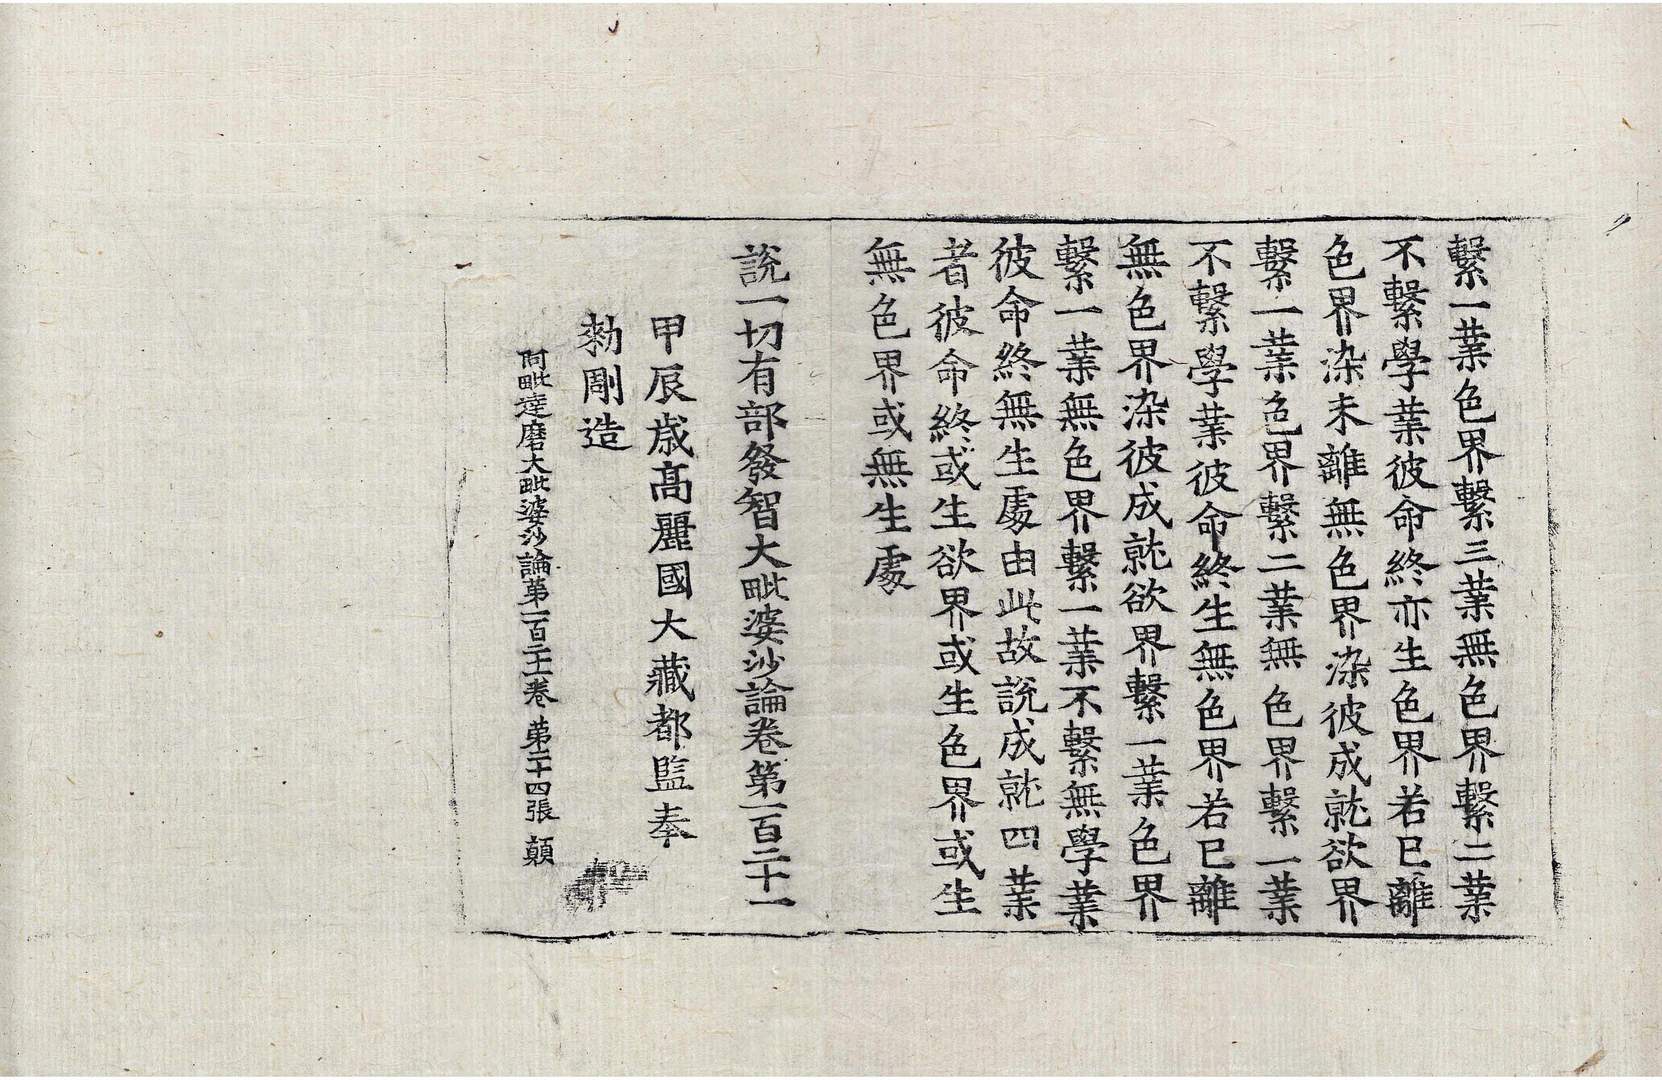 繫一業色界繫三業無色界繫二業
不繫學業彼命終亦生色界若已離
色界染未離無色界染彼成就欲界
繫一業色界繫二業無色界繫一業
不繫學業彼命終生無色界若已離
無色界染彼成就欲界繫一業色界
繫一業無色界繫一業不繫無學業
彼命終無生處由此故說成就四業
者彼命終或生欲界或生色界或生
無色界或無生處
說一切有部發智大毗婆沙論卷第一百二十一
甲辰歲高麗國大藏都監奉
勑彫造
阿毗達磨大毗婆沙論第一百二十一卷 第二十四張 顛